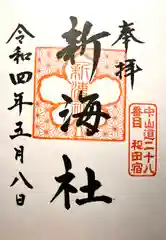 奉拝
中山道二十八
番目 和田宿
新海社
令和四年五月八日